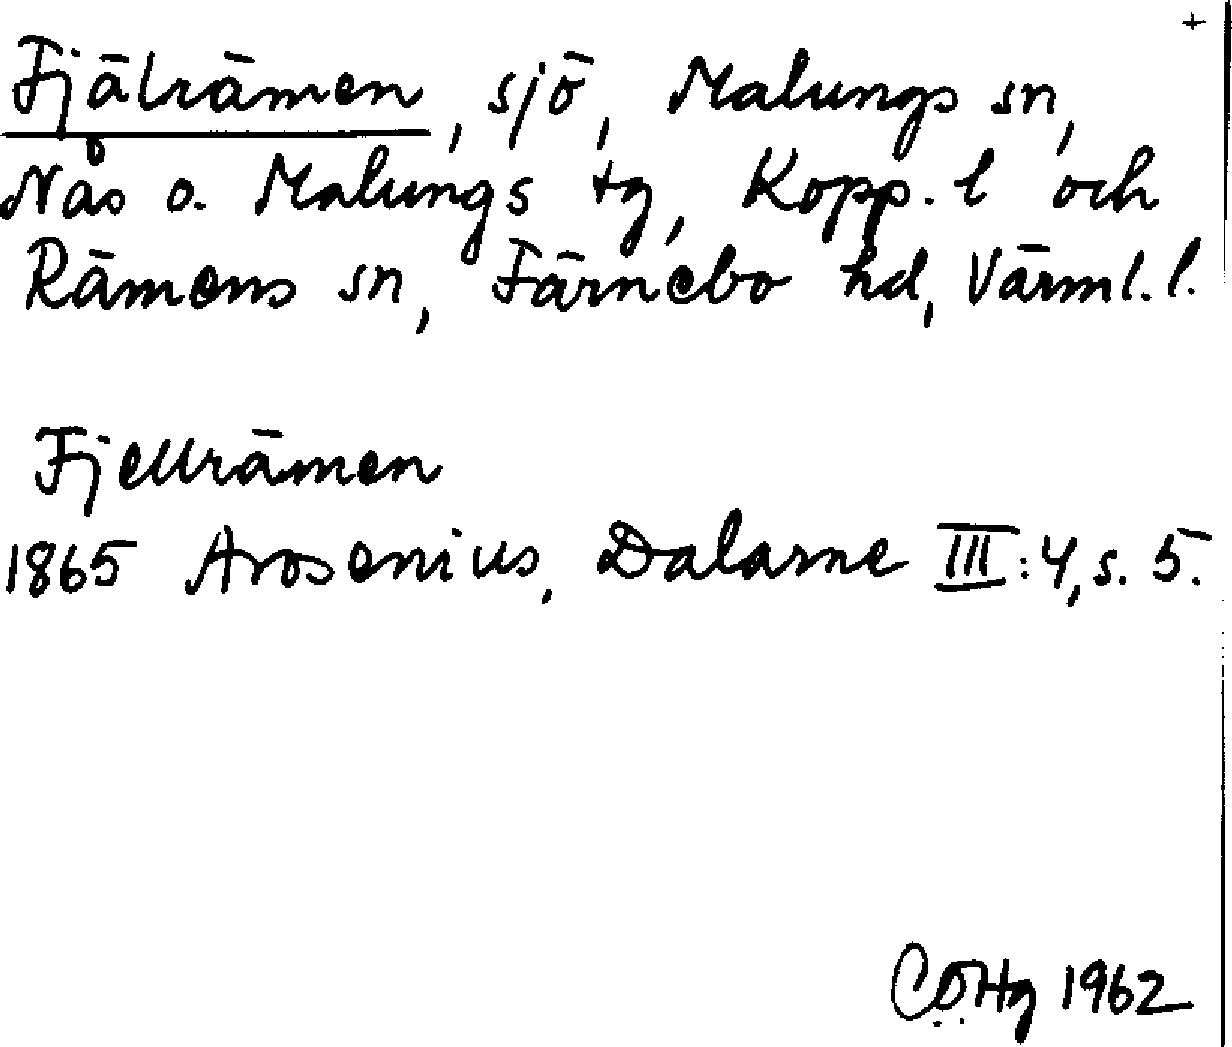 +
Fjälrämen, sjö, Malungs sn,
Nås o. Malungs tg, Kopp. l och
Rämens sn, Färnebo hd, Värml. l.
Fjellrämen
1865 Arosenius, Dalarne III:4, s. 5.
CÖHg 1962